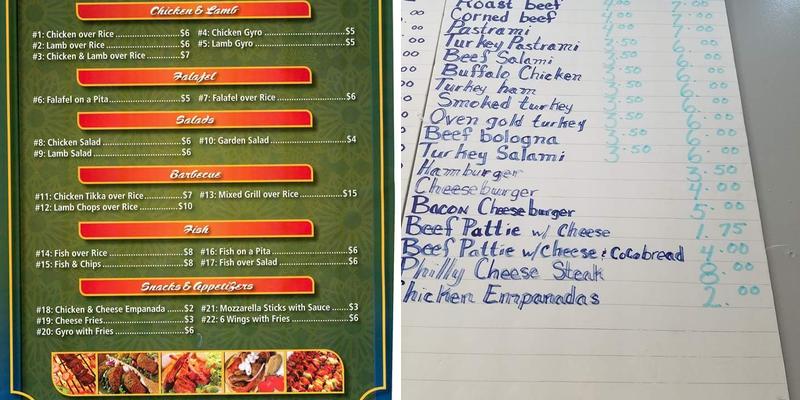 Chicken & Lamb
#1: Chicken over Rice ..................... $6 #4: Chicken Gyro .......................... $5
#2: Lamb over Rice ......................... $6 #5: Lamb Gyro .............................. $5
#3: Chicken & Lamb over Rice ........ $7
Falafel
#6: Falafel on a Pita ......................... $5 #7: Falafel over Rice ....................... $6
Salads
#8: Chicken Salad ........................... $6 #10: Garden Salad .......................... $4
#9: Lamb Salad .............................. $6
Barbecue
#11: Chicken Tikka over Rice ........... $7 #13: Mixed Grill over Rice ............... $15
#12: Lamb Chops over Rice ............. $10
Fish
#14: Fish over Rice ......................... $8 #16: Fish on a Pita .......................... $6
#15: Fish & Chips ............................ $8 #17: Fish over Salad ....................... $6
Snacks & Appetizers
#18: Chicken & Cheese Empanada ...... $2 #21: Mozzarella Sticks with Sauce ...... $3
#19: Cheese Fries ........................... $3 #22: 6 Wings with Fries ................... $6
#20: Gyro with Fries ....................... $6
Roast beef 4.00 7.00
Corned beef 4.00 7.00
Pastrami 4.00 7.00
Turkey Pastrami 3.50 6.00
Beef Salami 3.50 6.00
Buffalo Chicken 3.50 6.00
Turkey ham 3.50 6.00
Smoked turkey 3.50 6.00
Oven gold turkey 3.50 6.00
Beef bologna 3.50 6.00
Turkey Salami 3.50 6.00
Hamburger 3.50
Cheeseburger 4.00
Bacon Cheeseburger 5.00
Beef Pattie w/ Cheese 1.75
Beef Pattie w/Cheese & Cocobread 4.00
Philly Cheese Steak 8.00
hicken Empanadas 2.00